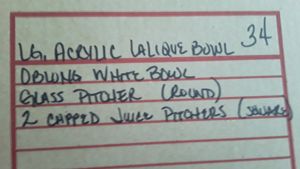 34
LG. ACRYLIC LALIQUE BOWL
OBLONG WHITE BOWL
GLASS PITCHER (ROUND)
2 CAPPED JUICE PITCHERS (SQUARE)